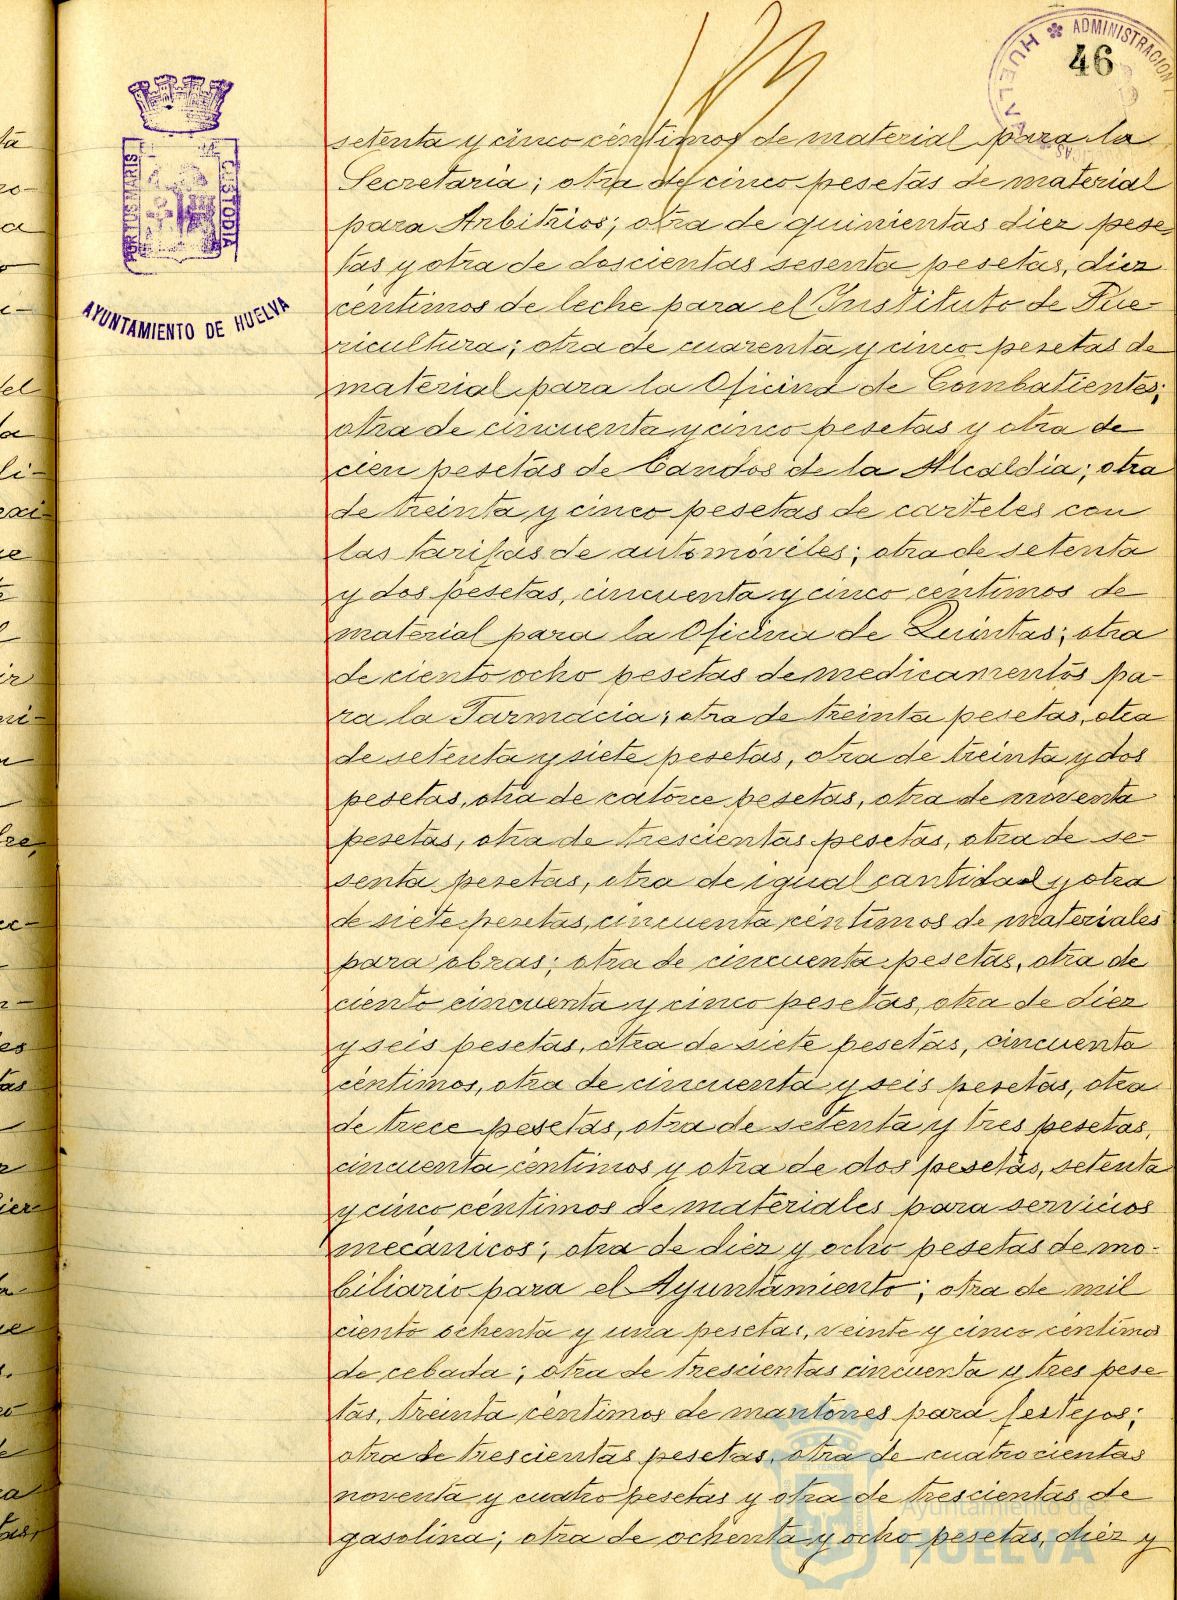 ADMINISTRACION
HUELVA
46
PORTUS MARIS
CUSTODIA
AYUNTAMIENTO DE HUELVA
setenta y cinco céntimos de material para la
Secretaria; otra de cinco pesetas de material
para Arbitrios; otra de quinientas diez pese-
tas y otra de doscientas sesenta pesetas, diez
céntimos de leche para el Instituto de Pue-
ricultura; otra de cuarenta y cinco pesetas de
material para la Oficina de Combatientes;
otra de cincuenta y cinco pesetas y otra de
cien pesetas de Bandos de la Alcaldia; otra
de treinta y cinco pesetas de carteles con
las tarifas de automóviles; otra de setenta
y dos pesetas, cincuenta y cinco centimos de
material para la Oficina de Quintas; otra
de ciento ocho pesetas de medicamentos pa-
ra la Farmacia; otra de treinta pesetas, otra
de setenta y siete pesetas, otra de treinta y dos
pesetas, otra de catorce pesetas, otra de noventa
pesetas, otra de trescientas pesetas, otra de se-
senta pesetas, otra de igual cantidad y otra
de siete pesetas, cincuenta céntimos de materiales
para obras; otra de cincuenta pesetas, otra de
ciento cincuenta y cinco pesetas, otra de diez
y seis pesetas, otra de siete pesetas, cincuenta
céntimos, otra de cincuenta y seis pesetas, otra
de trece pesetas, otra de setenta y tres pesetas,
cincuenta centimos y otra de dos pesetas, setenta
y cinco céntimos de materiales para servicios
mecánicos; otra de diez y ocho pesetas de mo-
biliario para el Ayuntamiento; otra de mil
ciento ochenta y una pesetas, veinte y cinco céntimos
de cebada; otra de trescientas cincuenta y tres pese
tas, treinta céntimos de mantones para festejos;
otra de trescientas pesetas, otra de cuatrocientas
noventa y cuatro pesetas y otra de trescientas de
gasolina; otra de ochenta y ocho pesetas, diez y
Ayuntamiento de
HUELVA